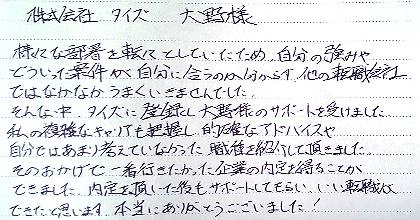 株式会社 タイズ 大野様
様々な部署を転々としていたため、自分の強みや
どういった案件が自分に合うのか分からず、他の転職会社
ではなかなかうまくいきませんでした。
そんな中、タイズに登録し大野様のサポートを受けました。
私の複雑なキャリアも把握し、的確なアドバイスや
自分ではあまり考えていなかった職種を紹介して頂きました。
そのおかげで一番行きたかった企業の内定を得ることが
できました。内定を頂いた後もサポートしてもらい、いい転職が
できたと思います。本当にありがとうございました!